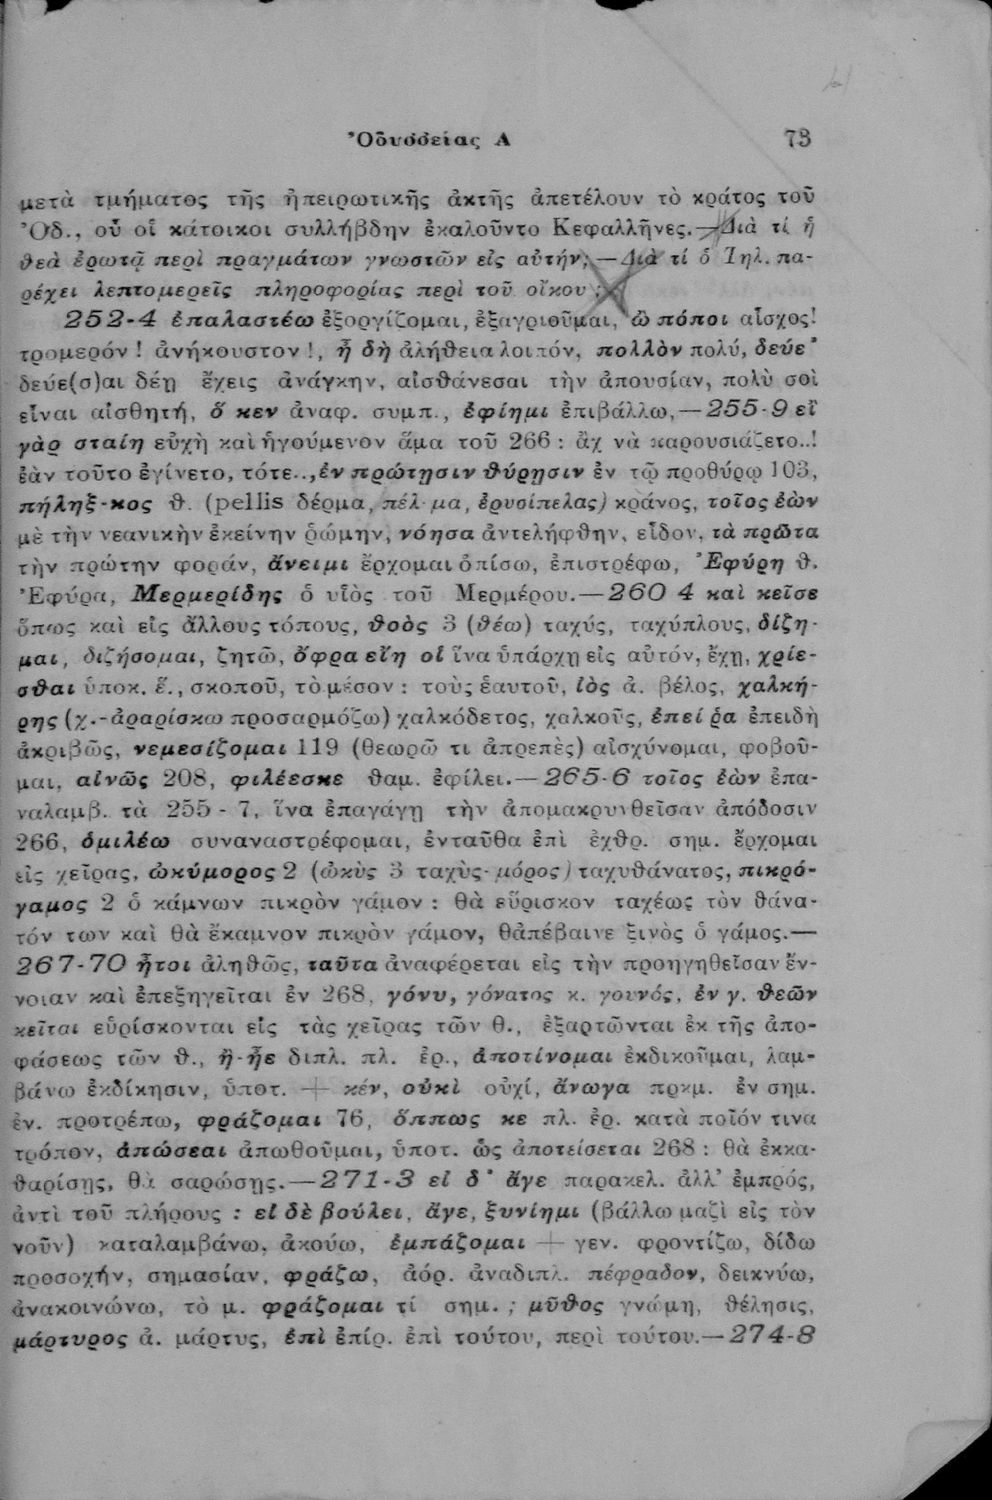 Ὀδυσσείας Α 73
μετὰ τμήματος τῆς ἠπειρωτικῆς ἀκτῆς ἀπετέλουν τὸ κράτος τοῦ
Ὀδ., οὗ οἱ κάτοικοι συλλήβδην ἐκαλοῦντο Κεφαλλῆνες.—Διὰ τί ἡ
θεὰ ἐρωτᾷ περὶ πραγμάτων γνωστῶν εἰς αὐτήν;—Διὰ τί ὁ Τηλ. πα-
ρέχει λεπτομερεῖς πληροφορίας περὶ τοῦ οἴκου;
252-4 ἐπαλαστέω ἐξοργίζομαι, ἐξαγριοῦμαι, ὢ πόποι αἶσχος!
τρομερόν! ἀνήκουστον!, ἦ δὴ ἀλήθεια λοιπόν, πολλὸν πολύ, δεύε'
δεύε(σ)αι δέῃ ἔχεις ἀνάγκην, αἰσθάνεσαι τὴν ἀπουσίαν, πολὺ σοὶ
εἶναι αἰσθητή, ὅ κεν ἀναφ. συμπ., ἐφίημι ἐπιβάλλω,—255-9 εἴ
γὰρ σταίη εὐχὴ καὶ ἡγούμενον ἅμα τοῦ 266: ἂχ νὰ παρουσιάζετο..!
ἐὰν τοῦτο ἐγίνετο, τότε.., ἐν πρώτῃσιν θύρῃσιν ἐν τῷ προθύρῳ 103,
πήληξ-κος θ. (pellis δέρμα, πέλ-μα, ἐρυσίπελας) κράνος, τοῖος ἐὼν
μὲ τὴν νεανικὴν ἐκείνην ῥώμην, νόησα ἀντελήφθην, εἶδον, τὰ πρῶτα
τὴν πρώτην φοράν, ἄνειμι ἔρχομαι ὀπίσω, ἐπιστρέφω, Ἐφύρη θ.
Ἐφύρα, Μερμερίδης ὁ υἱὸς τοῦ Μερμέρου.—260 4 καὶ κεῖσε
ὅπως καὶ εἰς ἄλλους τόπους, θοὸς 3 (θέω) ταχύς, ταχύπλους, δίζη-
μαι, διζήσομαι, ζητῶ, ὄφρα εἴη οἱ ἵνα ὑπάρχῃ εἰς αὐτόν, ἔχῃ, χρίε-
σθαι ὑποκ. ἕ., σκοποῦ, τὸ μέσον: τοὺς ἑαυτοῦ, ἰὸς ἀ. βέλος, χαλκή-
ρης (χ.-ἀραρίσκω προσαρμόζω) χαλκόδετος, χαλκοῦς, ἐπεί ῥα ἐπειδὴ
ἀκριβῶς, νεμεσίζομαι 119 (θεωρῶ τι ἀπρεπὲς) αἰσχύνομαι, φοβοῦ-
μαι, αἰνῶς 208, φιλέεσκε θαμ. ἐφίλει.—265-6 τοῖος ἐὼν ἐπα-
ναλαμβ. τὰ 255 - 7, ἵνα ἐπαγάγῃ τὴν ἀπομακρυνθεῖσαν ἀπόδοσιν
266, ὁμιλέω συναναστρέφομαι, ἐνταῦθα ἐπὶ ἐχθρ. σημ. ἔρχομαι
εἰς χεῖρας, ὠκύμορος 2 (ὠκὺς 3 ταχὺς-μόρος) ταχυθάνατος, πικρό-
γαμος 2 ὁ κάμνων πικρὸν γάμον: θὰ εὕρισκον ταχέως τὸν θάνα-
τόν των καὶ θὰ ἔκαμνον πικρὸν γάμον, θἀπέβαινε ξινὸς ὁ γάμος.—
267-70 ἦτοι ἀληθῶς, ταῦτα ἀναφέρεται εἰς τὴν προηγηθεῖσαν ἔν-
νοιαν καὶ ἐπεξηγεῖται ἐν 268, γόνυ, γόνατος κ. γουνός, ἐν γ. θεῶν
κεῖται εὑρίσκονται εἰς τὰς χεῖρας τῶν θ., ἐξαρτῶνται ἐκ τῆς ἀπο-
φάσεως τῶν θ., ἢ-ἦε διπλ. πλ. ἐρ., ἀποτίνομαι ἐκδικοῦμαι, λαμ-
βάνω ἐκδίκησιν, ὑποτ. + κέν, οὐκὶ οὐχί, ἄνωγα πρκμ. ἐν σημ.
ἐν. προτρέπω, φράζομαι 76, ὅππως κε πλ. ἐρ. κατὰ ποῖόν τινα
τρόπον, ἀπώσεαι ἀπωθοῦμαι, ὑποτ. ὡς ἀποτείσεται 268: θὰ ἐκκα-
θαρίσῃς, θὰ σαρώσῃς.—271-3 εἰ δ' ἄγε παρακελ. ἀλλ' ἐμπρός,
ἀντὶ τοῦ πλήρους: εἰ δὲ βούλει, ἄγε, ξυνίημι (βάλλω μαζὶ εἰς τὸν
νοῦν) καταλαμβάνω, ἀκούω, ἐμπάζομαι + γεν. φροντίζω, δίδω
προσοχήν, σημασίαν, φράζω, ἀόρ. ἀναδιπλ. πέφραδον, δεικνύω,
ἀνακοινώνω, τὸ μ. φράζομαι τί σημ.; μῦθος γνώμη, θέλησις,
μάρτυρος ἀ. μάρτυς, ἐπὶ ἐπίρ. ἐπὶ τούτου, περὶ τούτου.—274-8